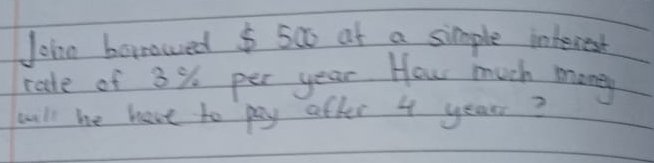 John borrowed $ 500 at a simple interest
rate of 3% per year. How much money
will he have to pay after 4 years?